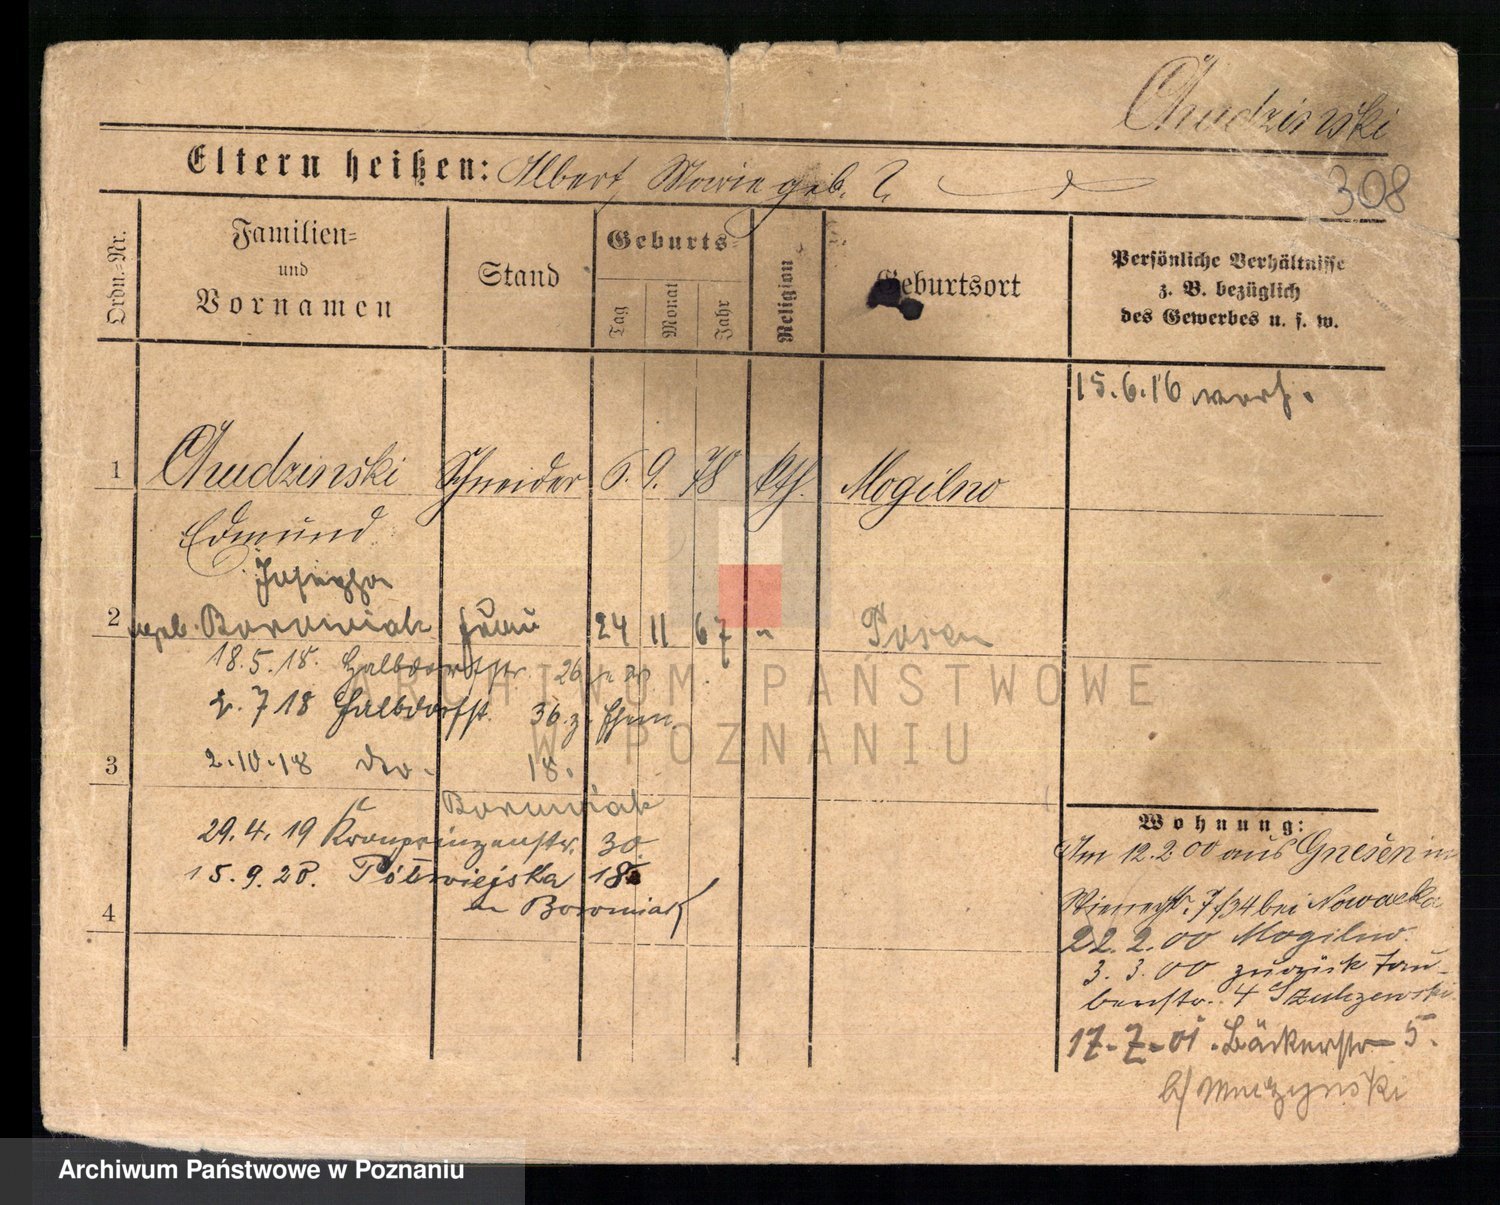 Chudzinski
308
Eltern heißen: Albert Marie geb. ?
Ordn.-Nr.
Familien-
und
Vornamen
Stand
Geburts-
Tag
Monat
Jahr
Religion
Geburtsort
Persönliche Verhältnisse
z. B. bezüglich
des Gewerbes u. s. w.
15.6.16
1 Chudzinski Schneider 6. 9. 78 kth. Mogilno
Edmund
Josepha
2 geb. Borowiak Frau 24 11 67 " Posen
18.5.18. Halbdorfstr. 26
2.7.18 Halbdorfst. 36 z.
3 2.10.18 dto. 18.
Borowiak
29.4.19 Kronprinzenstr. 30
15.9.20. Półwiejska 18
4 Borowiak
Wohnung:
Am 12.2.00 aus Gnesen in
7/34 bei Nowacka
22.2.00 Mogilno.
3.3.00 zurück Tau-
benstr. 4 Szulczewski
17.7.01. Bäckerstr 5.
b/ Muczynski
ARCHIWUM PAŃSTWOWE
W POZNANIU
Archiwum Państwowe w Poznaniu